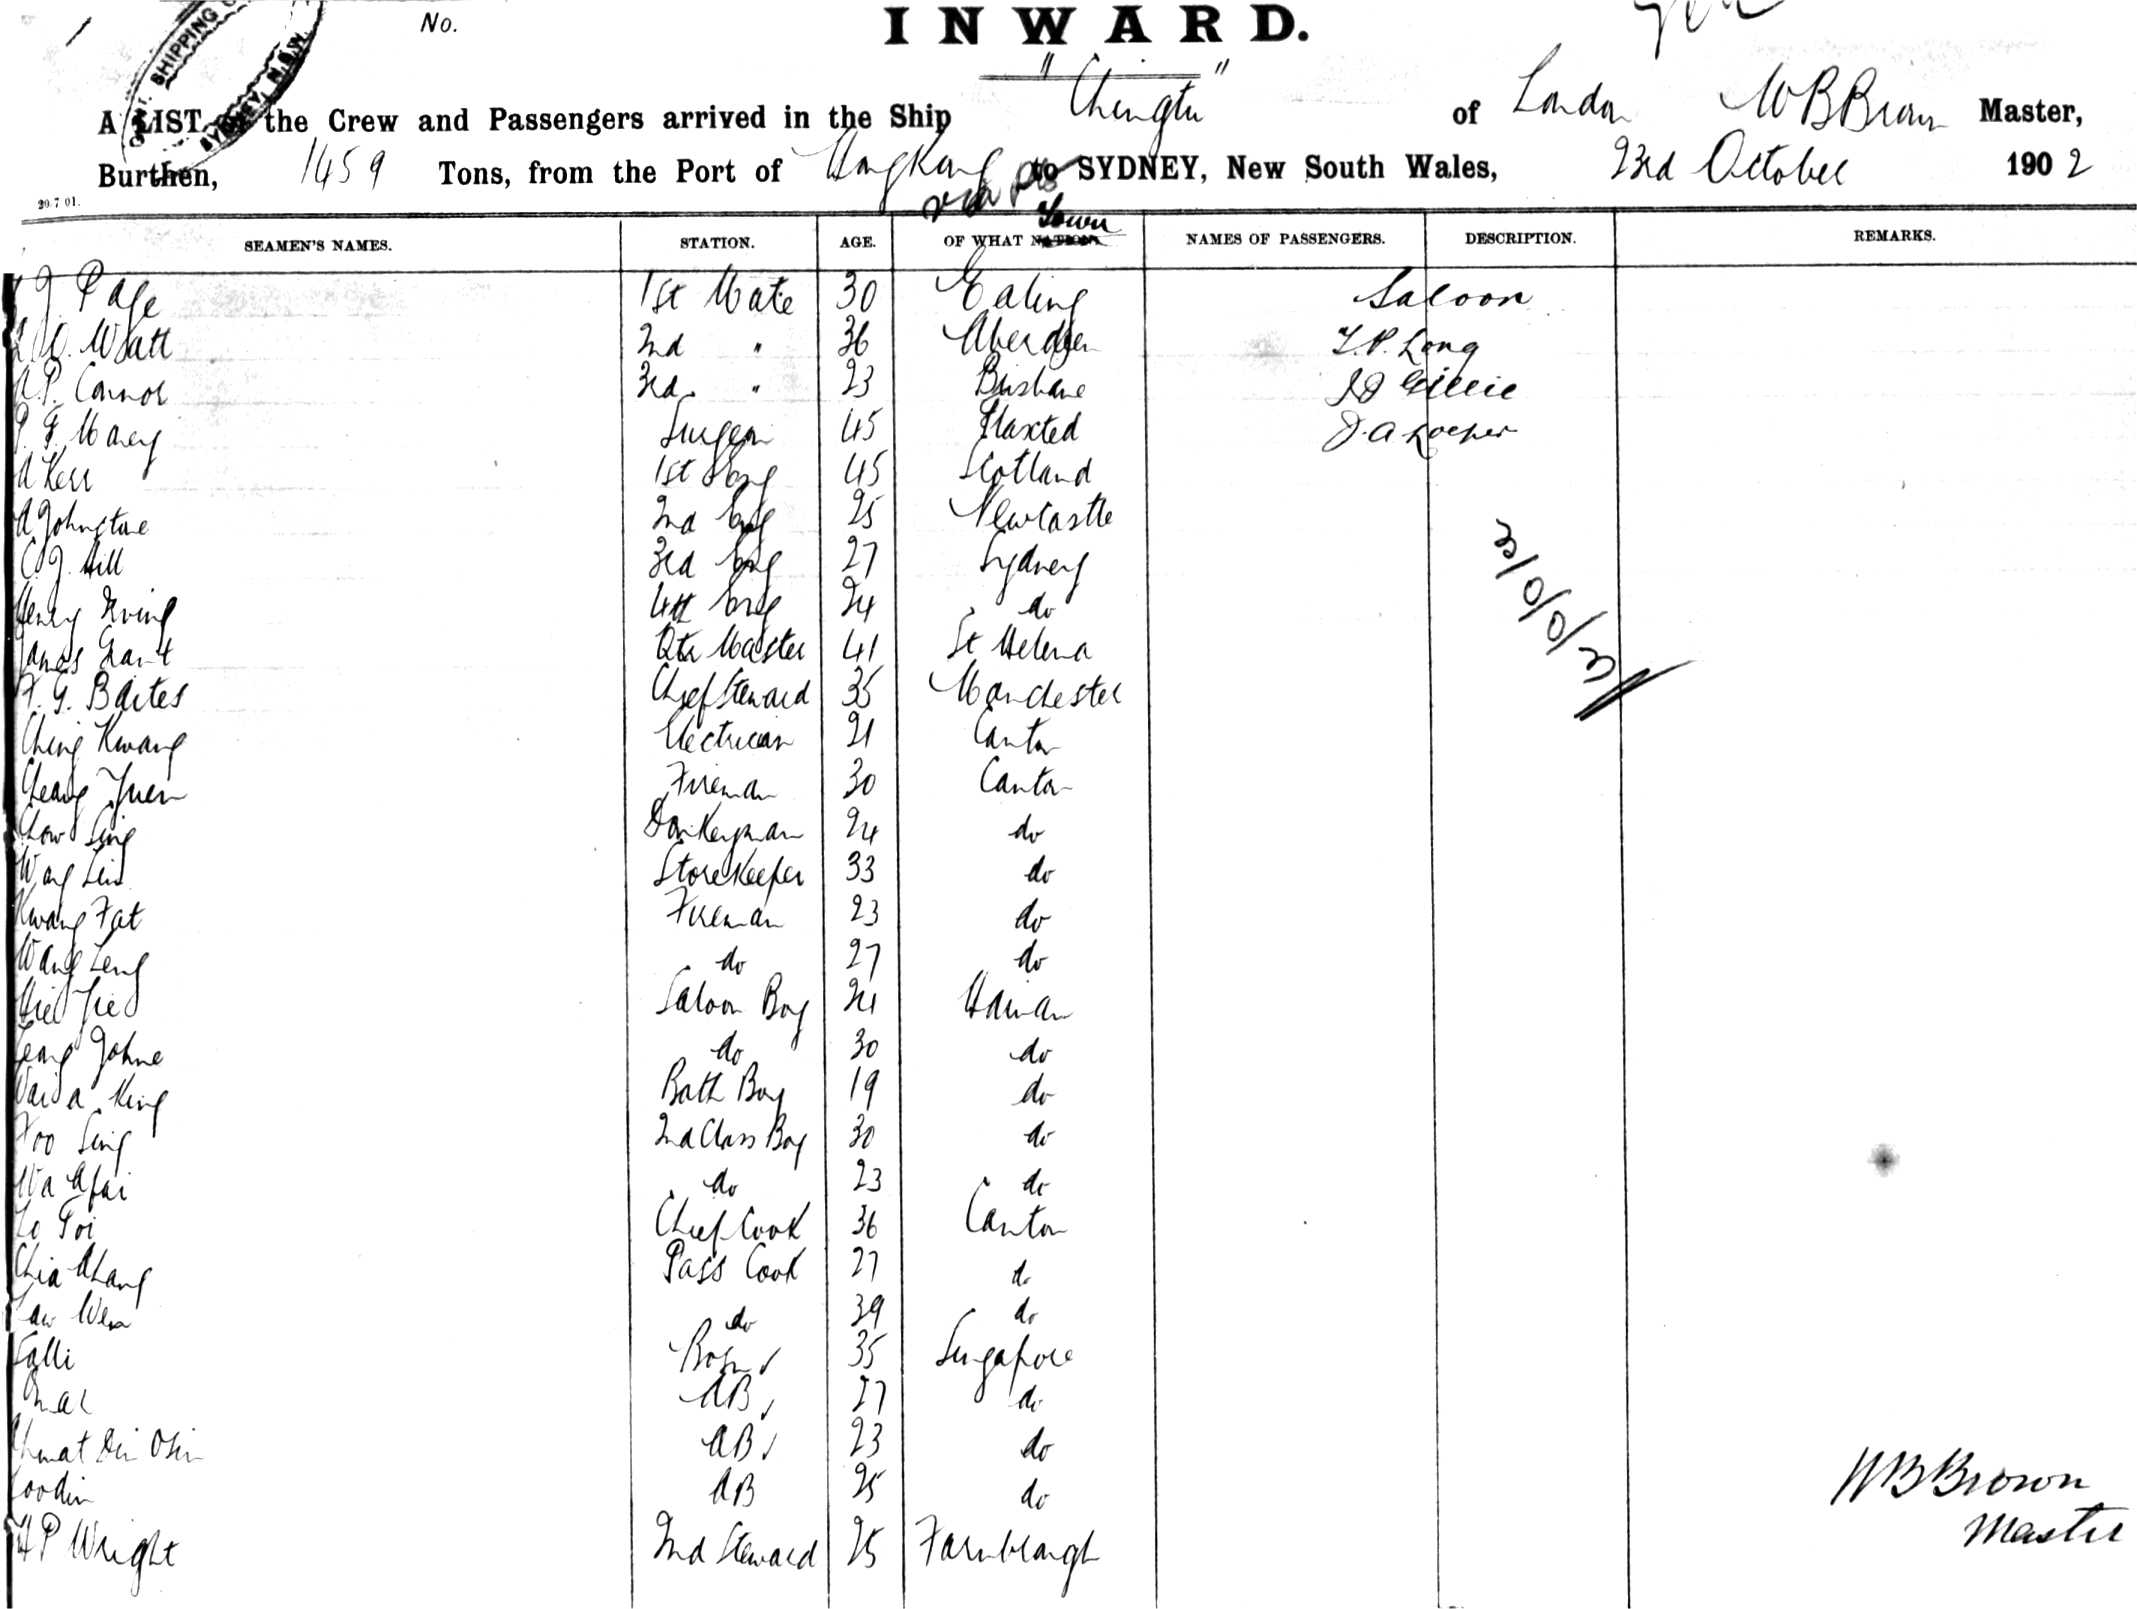 No.
INWARD.
SHIPPING
SYDNEY, N.S.W.
A LIST the Crew and Passengers arrived in the Ship "Chingtu" of London W B Brown Master,
Burthen, 1459 Tons, from the Port of Hong Kong via to SYDNEY, New South Wales, 23rd October 1902
20.7.01.
SEAMEN'S NAMES. STATION. AGE. OF WHAT NATION. Town NAMES OF PASSENGERS. DESCRIPTION. REMARKS.
J. Page 1st Mate 30 Ealing Saloon
Wyatt 2nd " 36 Aberdeen T.P. Long
A.P. Connor 3rd " 23 Brisbane J J Gillie
P. F. Surgeon 45 Plaxted J. A
A Kerr 1st Eng 45 Scotland
A Johnstone 2nd Eng 25 Newcastle
C. J. Hill 3rd Eng 27 Sydney
Henry Irving 4th Eng 24 do
James Grant Qtr Master 41 St Helena
F. G. Baites Chief Steward 35 Manchester
Ching Kwang Electrician 21 Canton
Cheang Yuen Fireman 30 Canton
Chow Sing Donkeyman 24 do
Wong Storekeeper 33 do
Kwang Fat Fireman 23 do
Wang Leng do 27 do
Saloon Boy 24 Hainan
Johne do 30 do
King Bath Boy 19 do
Foo Sing 2nd Class Boy 30 do
Wa Afai do 23 do
Lo Poi Chief Cook 36 Canton
Chia Ahang Pass Cook 27 do
do 39 do
Salli Bosn 35 Singapore
AB 27 do
AB 23 do
AB 25 do
P Wright 2nd Steward 25 Farnbrough
W B Brown
Master